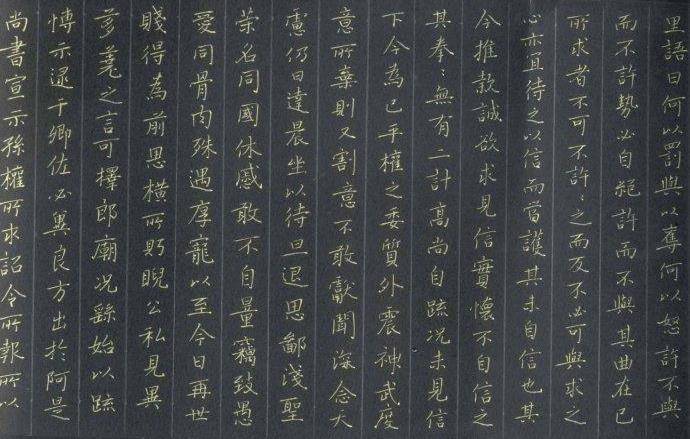 尚書宣示孫權所求詔令所報所以
博示逮于卿佐必冀良方出於阿是
芻蕘之言可擇郎廟況繇始以疏
賤得為前恩橫所盼睨公私見異
愛同骨肉殊遇厚寵以至今日再世
榮名同國休慼敢不自量竊致愚
慮仍日達晨坐以待旦退思鄙淺聖
意所棄則又割意不敢獻聞深念天
下今為已平權之委質外震神武度
其拳〻無有二計高尚自疏況未見信
今推款誠欲求見信實懷不自信之
心亦宜待之以信而當護其未自信也其
所求者不可不許〻之而反不必可與求之
而不許勢必自絕許而不與其曲在己
里語曰何以罰與以奪何以怒許不與